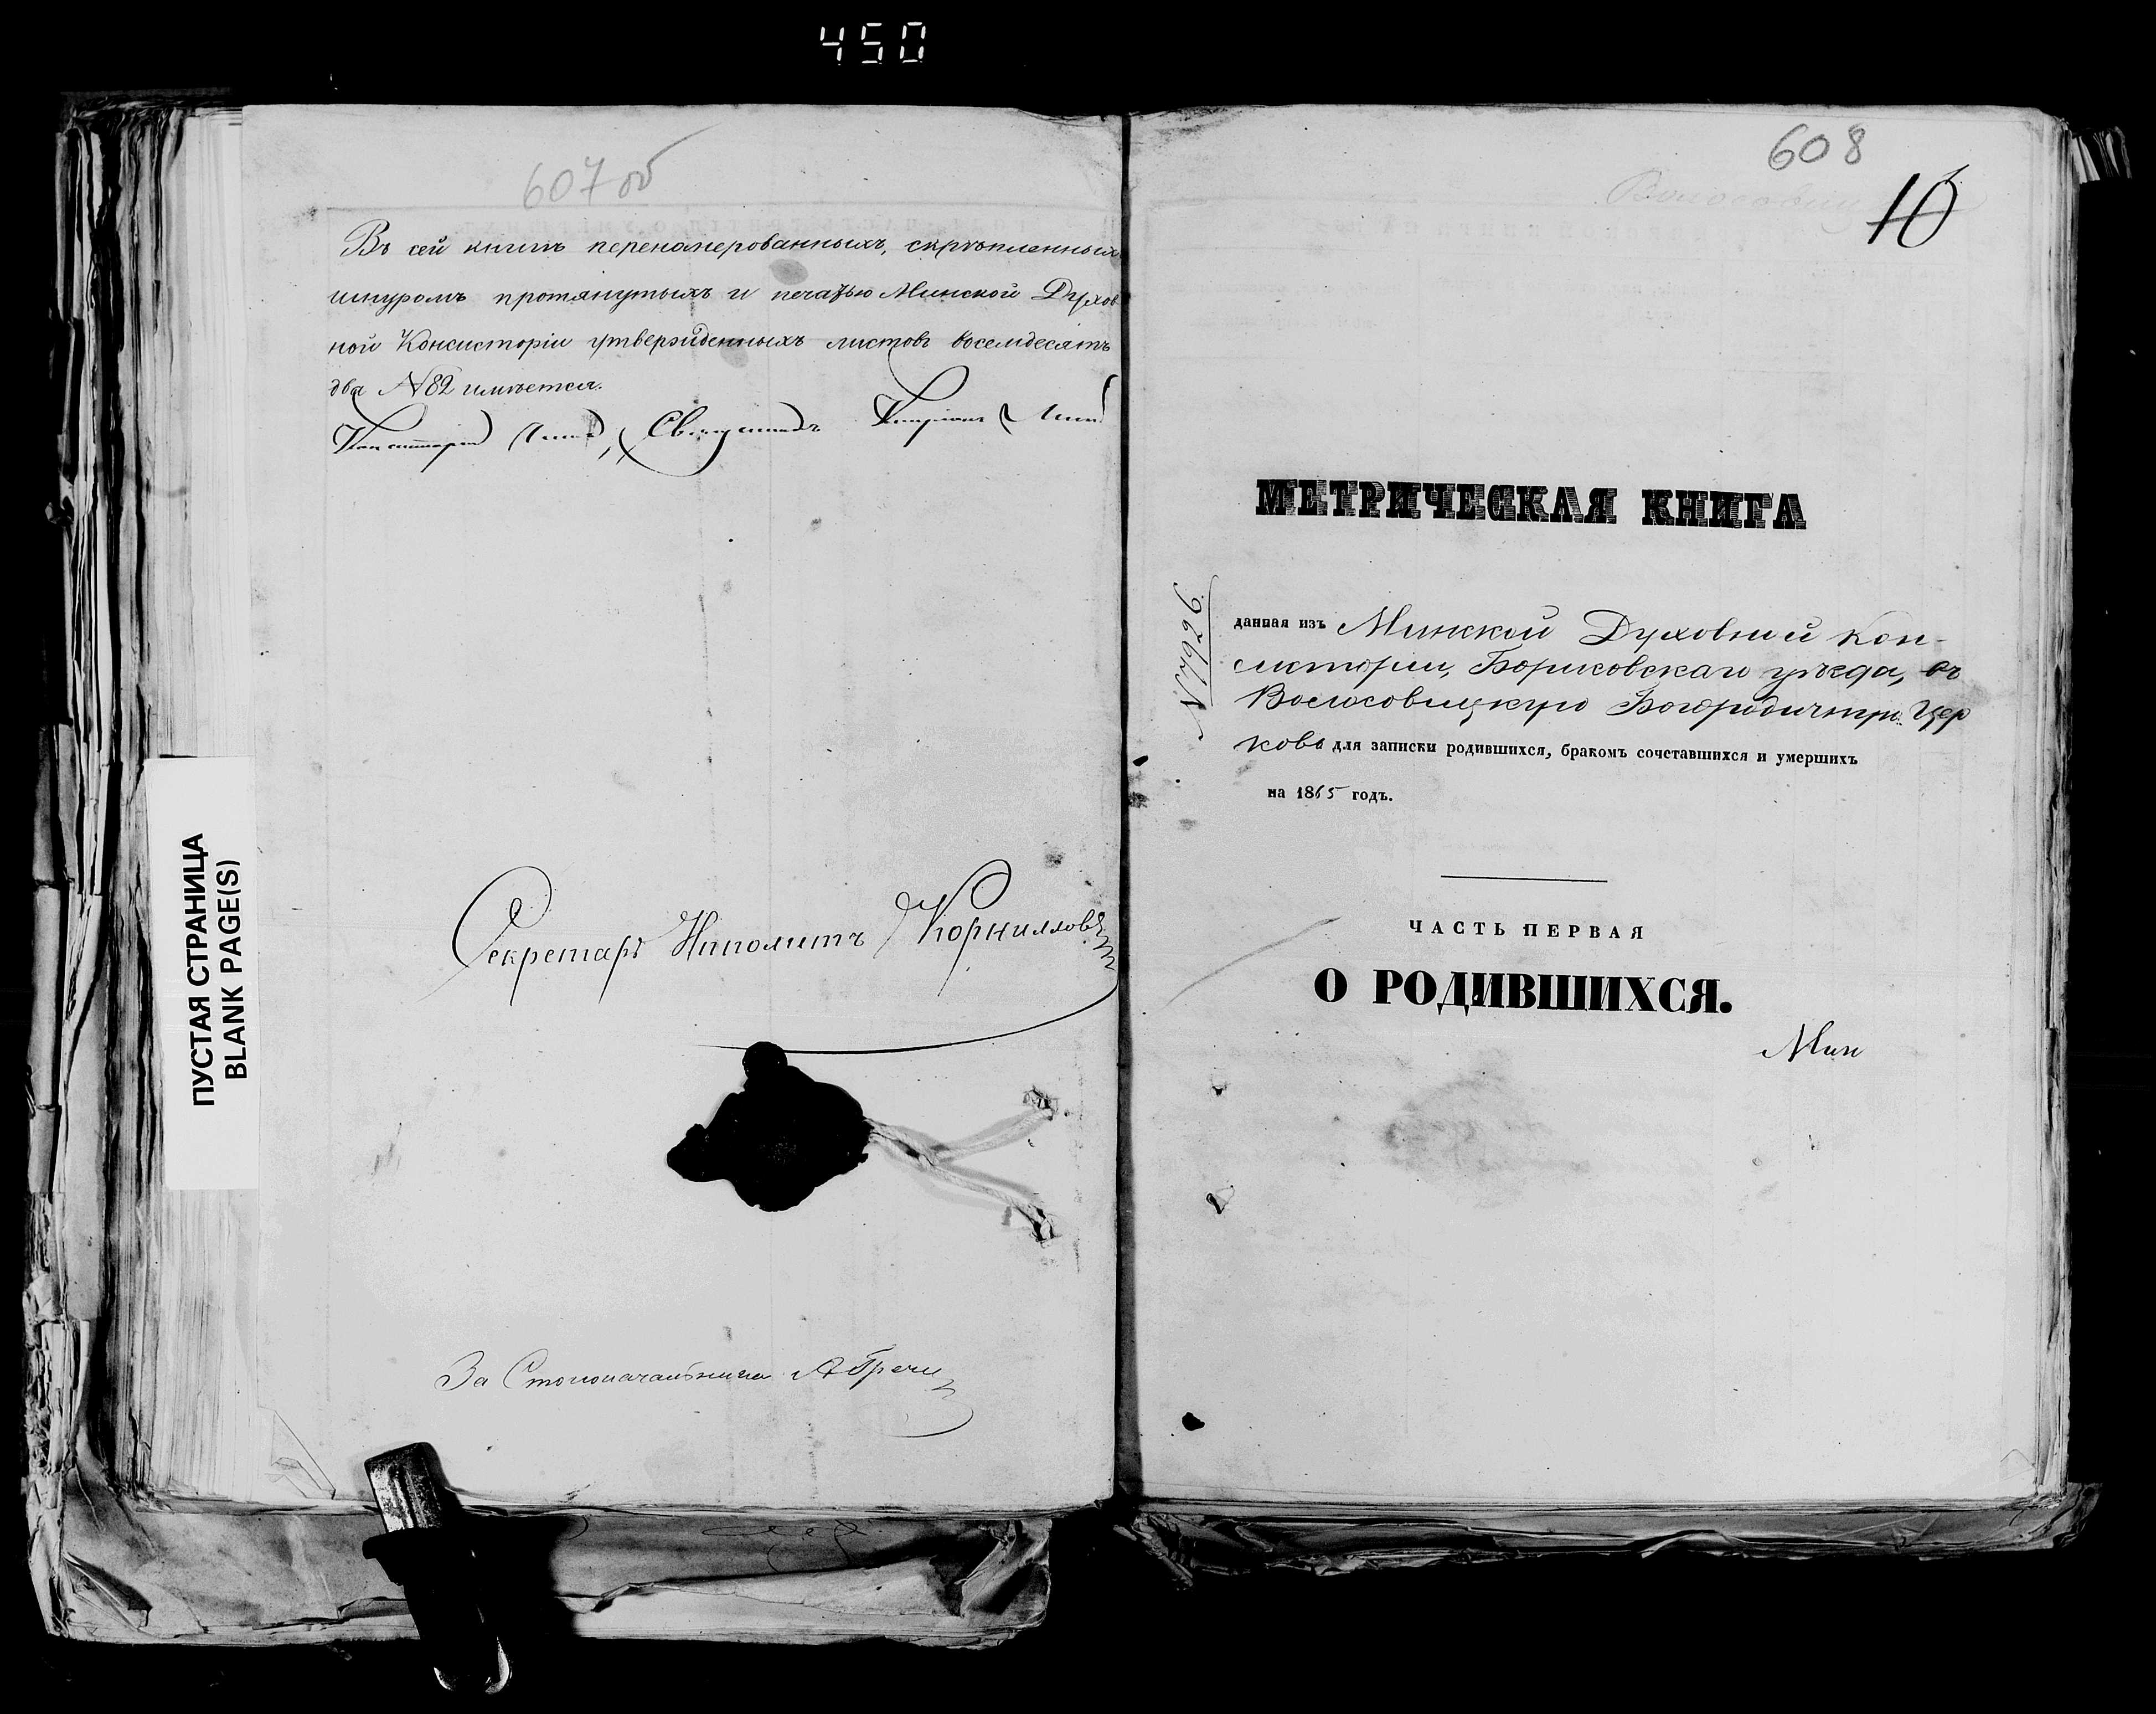 450
607 об
Въ сей книгѣ перенамерованныхъ, скрѣпленныхъ
шнуромъ протянутыхъ и печатью Минской Духов
ной Консисторіи утвержденныхъ листовъ восемдесятъ
два №82 имѣется.
Священникъ
Секретарь Иполитъ Корнилловъ
За Столоначальника
ПУСТАЯ СТРАНИЦА
BLANK PAGE(S)
608
10
МЕТРИЧЕСКАЯ КНИГА
№7926.
данная изъ Минской Духовной Кон-
систоріи, Борисовскаго уѣзда, въ
Волосовицкую Богородичную Цер
ковь для записки родившихся, бракомъ сочетавшихся и умершихъ
на 1865 годъ.
ЧАСТЬ ПЕРВАЯ
О РОДИВШИХСЯ.
Мин